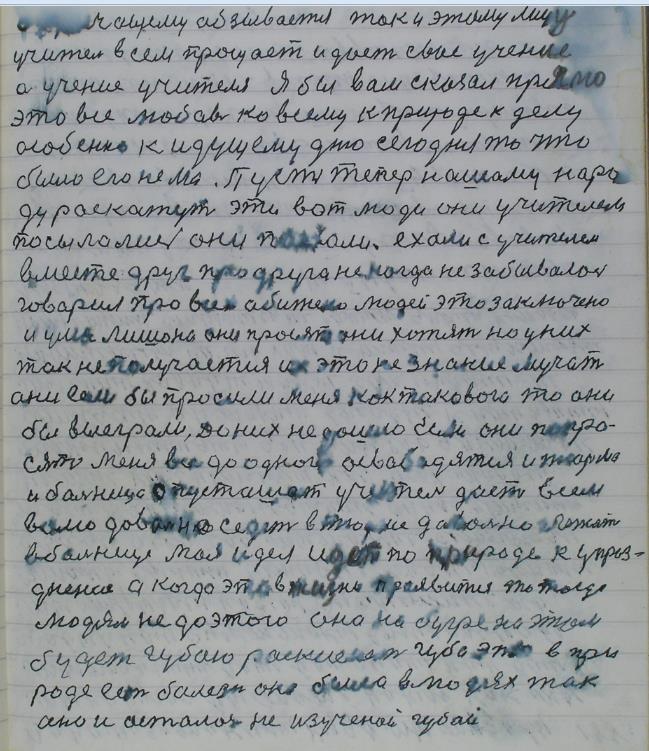 чащему абзывается так и этому лицу
учител всем прощает и дает свое учение
а учение учителя Я бы вам сказал прямо
это все любов ко всему к природе к делу
особенно к идущему дню сегодня то что
было его нема. Пусть тепер нашему наро
ду раскажут эти вот люди они учителем
посылалис они поехали. ехали с учителем
вместе друг про друга не когда не забывалос
говарил про всех абижено людей это заключено
и ума лишона они просят они хотят но у них
так не получается их это не знание мучат
они если бы просили меня как такового то они
бы выеграли, до них не дошло если они попро-
сят меня все до одной освабодятся и тюрма
и балница опусташат учител дает всем
вамо доволно седет в тюрме доволно лежат
в балнице мая идея идет по природе к упраз-
днению а когда это в жизнь проявится то тогда
людям не до этого она на бугре на этом
будет губаю раскисат губа это в при
роде ест балезн она была в людях так
ано и осталос не изученой губай